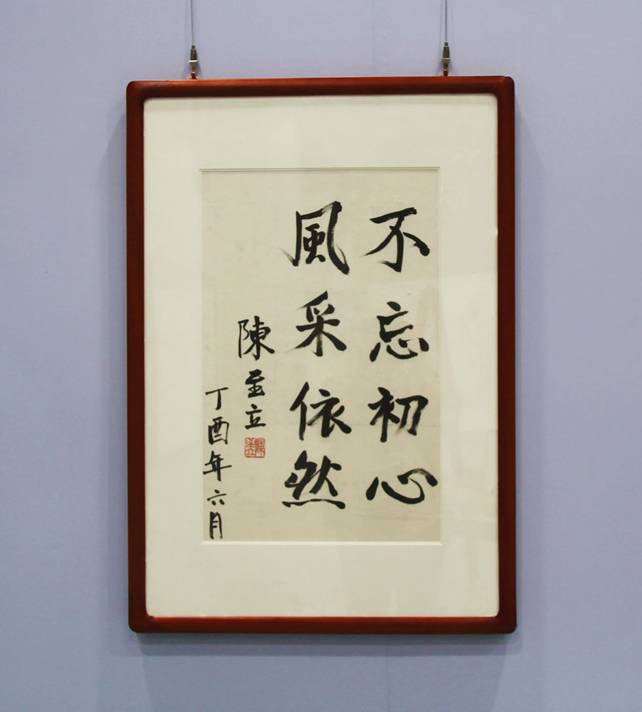 不忘初心
風采依然
陳至立
丁酉年六月